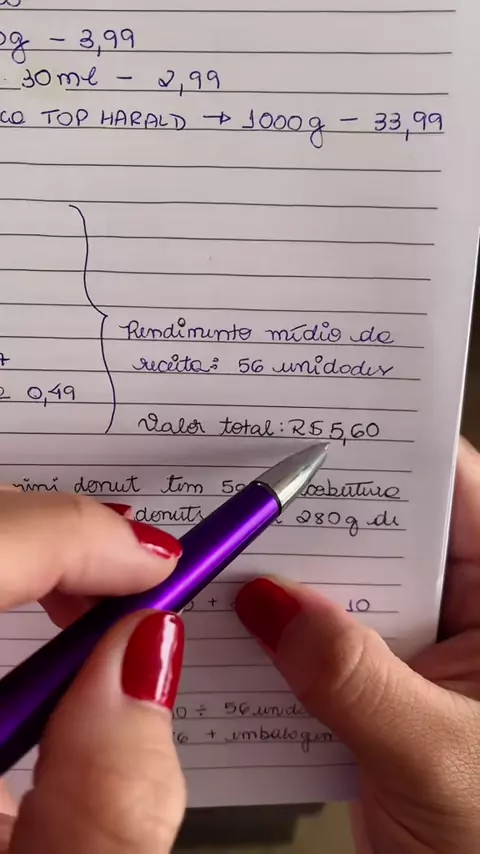 g - 3,99
30ml - 2,99
TOP HARALD → 1000g - 33,99
Rendimento médio da
receita: 56 unidades
0,49
Valor total: R$ 5,60
donut tem 5g cobertura
donuts 280g de
+ 10
÷ 56 unid
+ embalagem